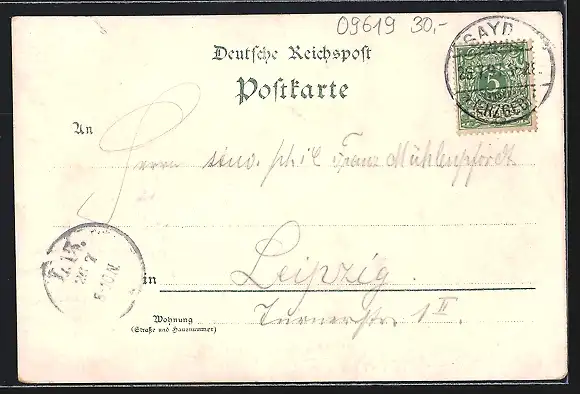 09619 30,-
SAYD
5
ERZGEB
Deutsche Reichspost
Postkarte
An
Herrn stud. phil Franz Mühlenpfordt
L.13.
26 7
in Leipzig.
Turnerstr. 1 II.
Wohnung
(Straße und Hausnummer)